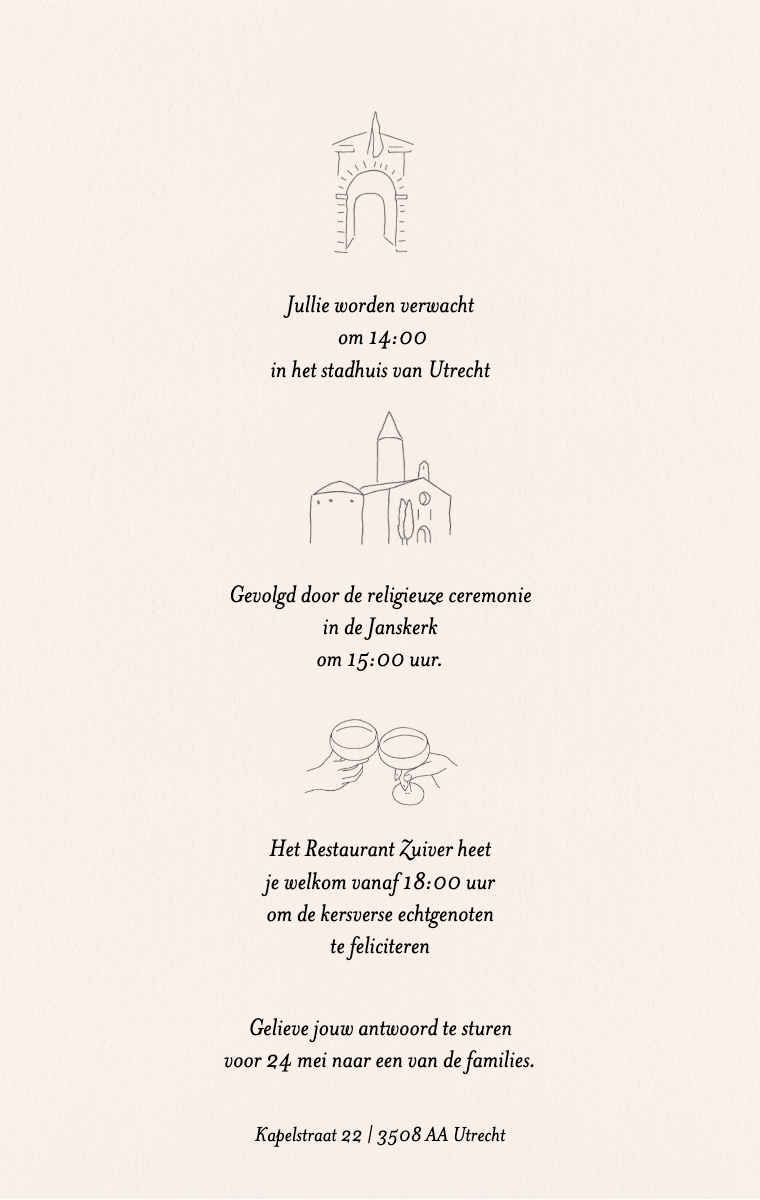 Jullie worden verwacht
om 14:00
in het stadhuis van Utrecht
Gevolgd door de religieuze ceremonie
in de Janskerk
om 15:00 uur.
Het Restaurant Zuiver heet
je welkom vanaf 18:00 uur
om de kersverse echtgenoten
te feliciteren
Gelieve jouw antwoord te sturen
voor 24 mei naar een van de families.
Kapelstraat 22 | 3508 AA Utrecht